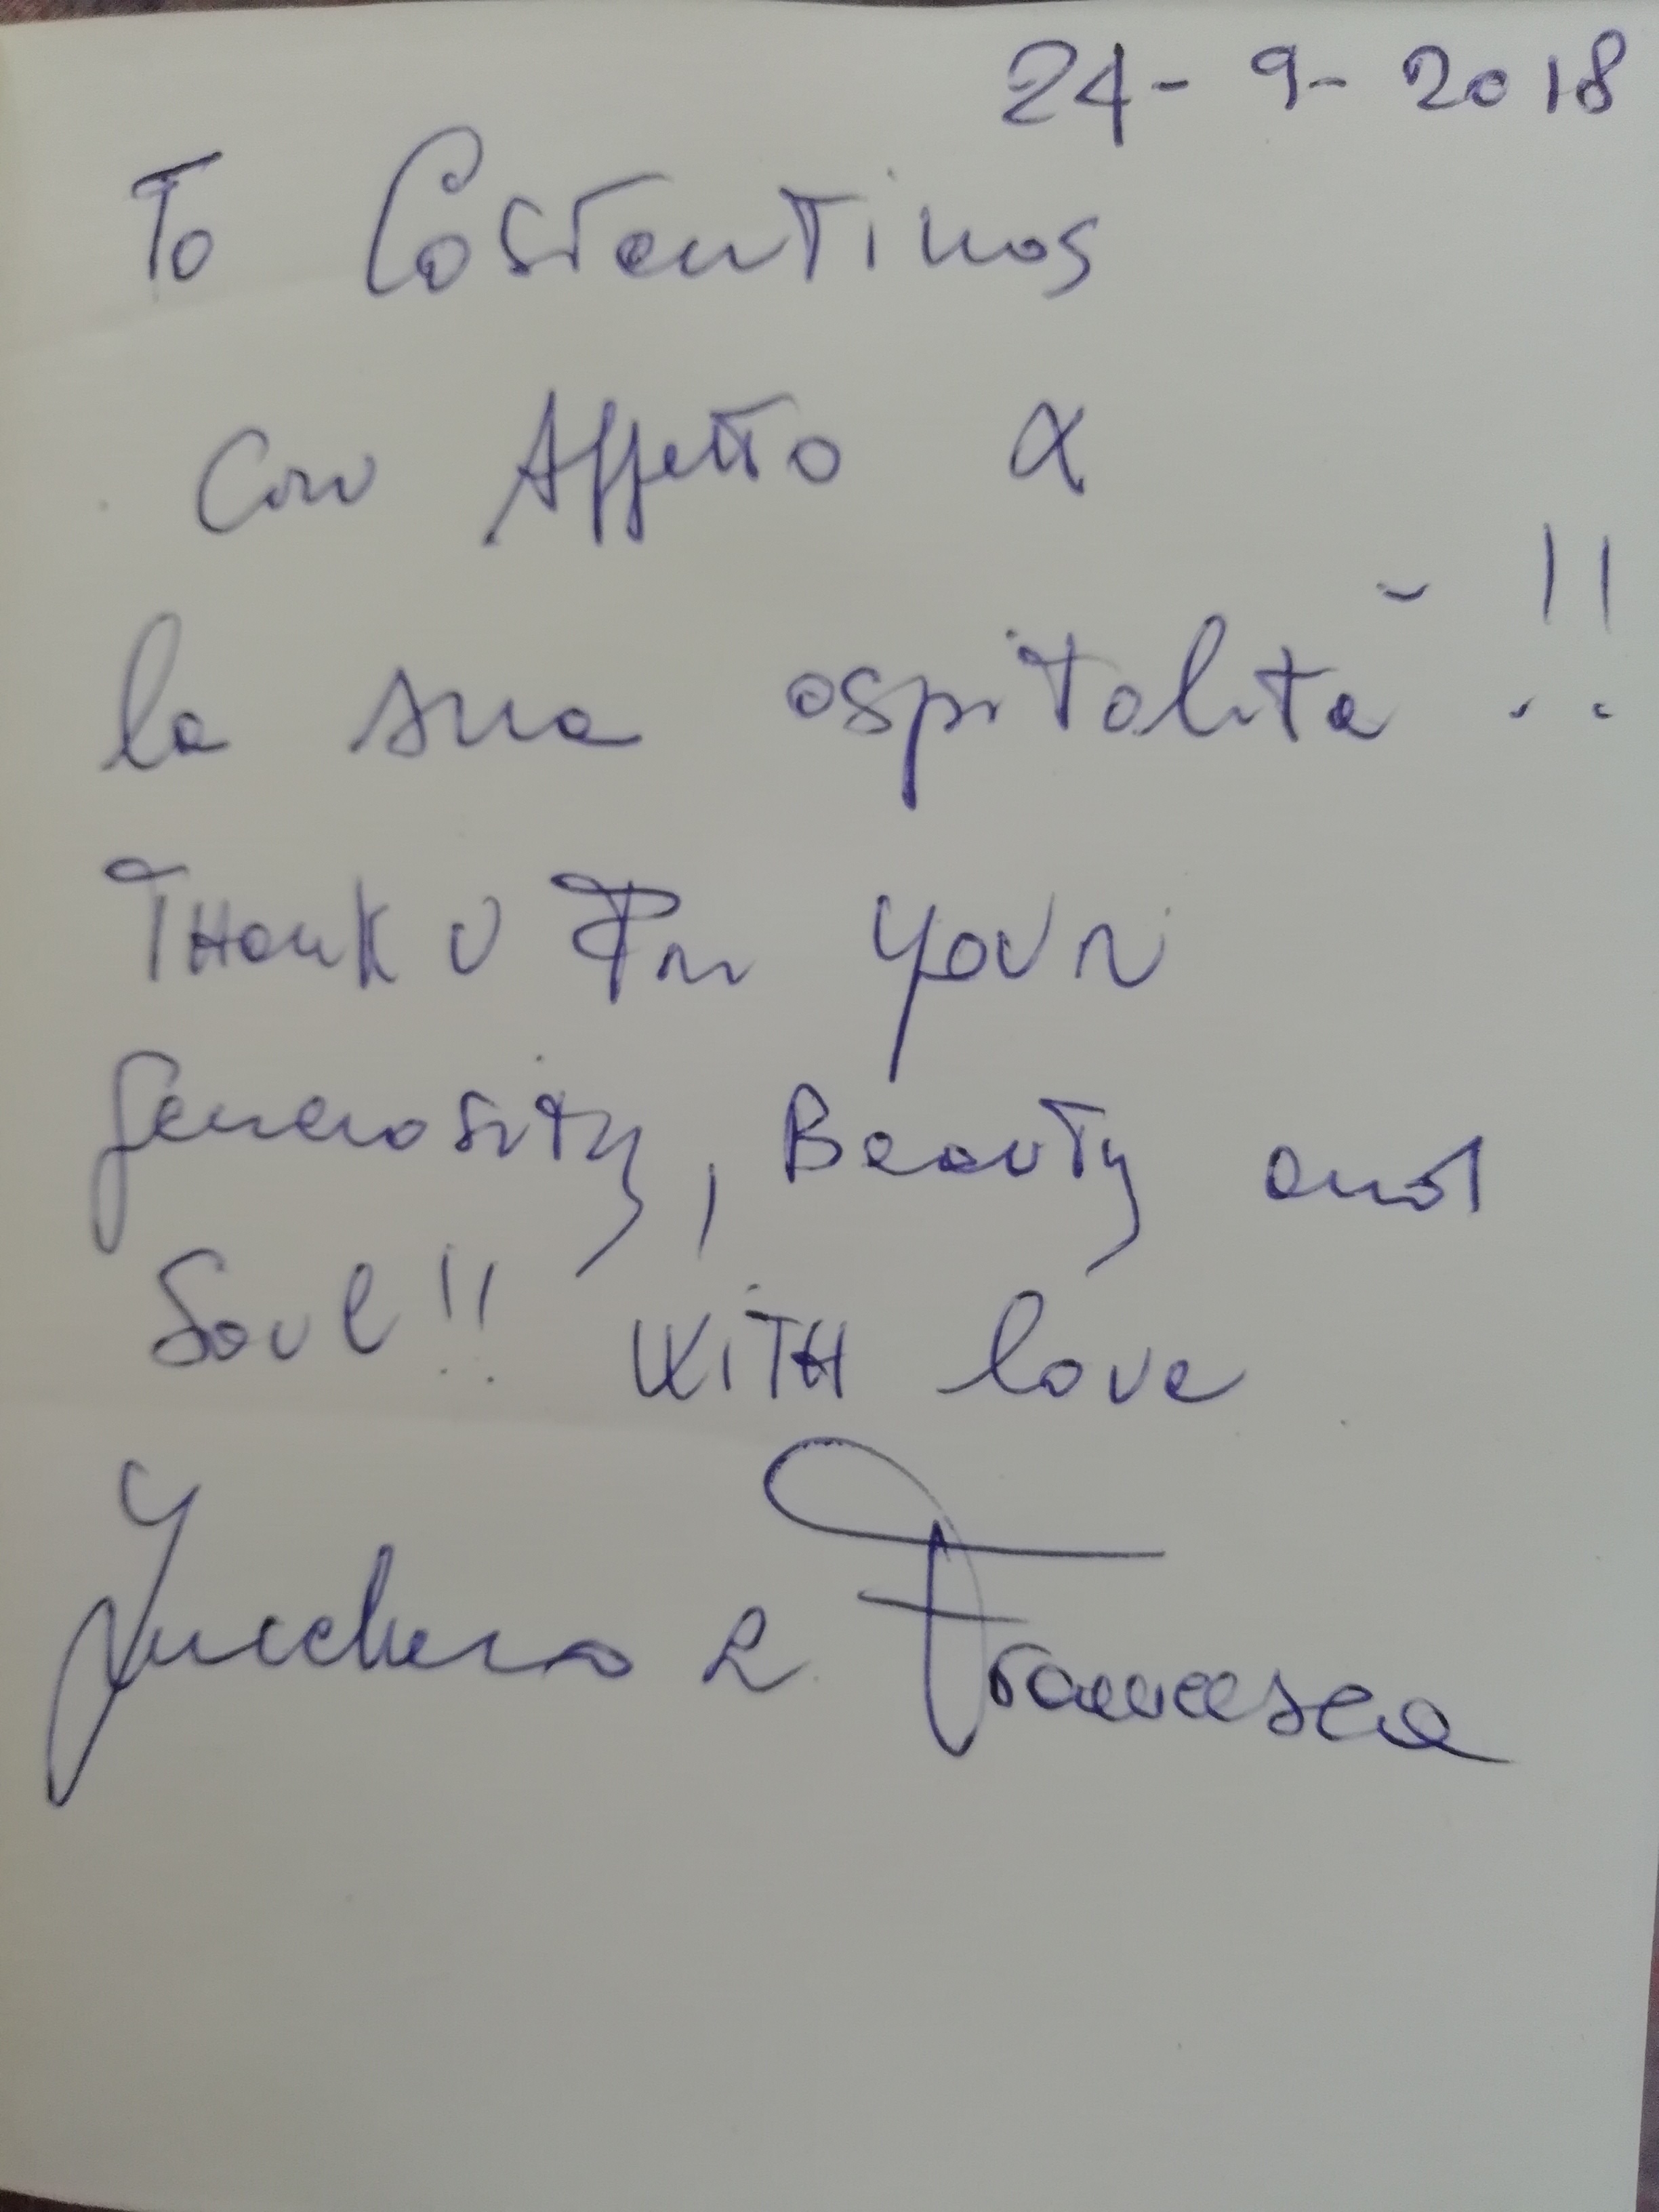 24-9-2018
To Costantinos
con Affetto x
la sua ospitalità!!
THank U For YOUR
generosity, Beauty and
Soul!! WITH love
Zucchero e Francesca